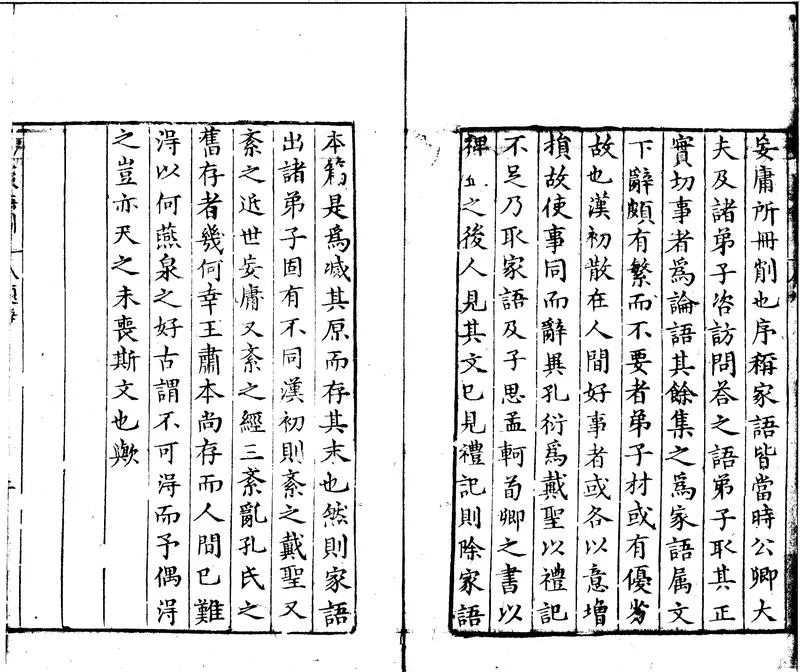 妄庸所冊削也序稱家語皆當時公卿大
夫及諸弟子咨訪問荅之語弟子取其正
實切事者爲論語其餘集之爲家語属文
下辭頗有繁而不要者弟子材或有優劣
故也漢初散在人間好事者或各以意增
損故使事同而辭異孔衍爲戴聖以禮記
不足乃取家語及子思孟軻荀卿之書以
裨之後人見其文已見禮記則除家語
本篇是爲滅其原而存其末也然則家語
出諸弟子固有不同漢初則紊之戴聖又
紊之近世妄庸又紊之經三紊亂孔氏之
舊存者幾何幸王肅本尚存而人間已難
淂以何燕泉之好古謂不可淂而予偶淂
之豈亦天之未喪斯文也歟